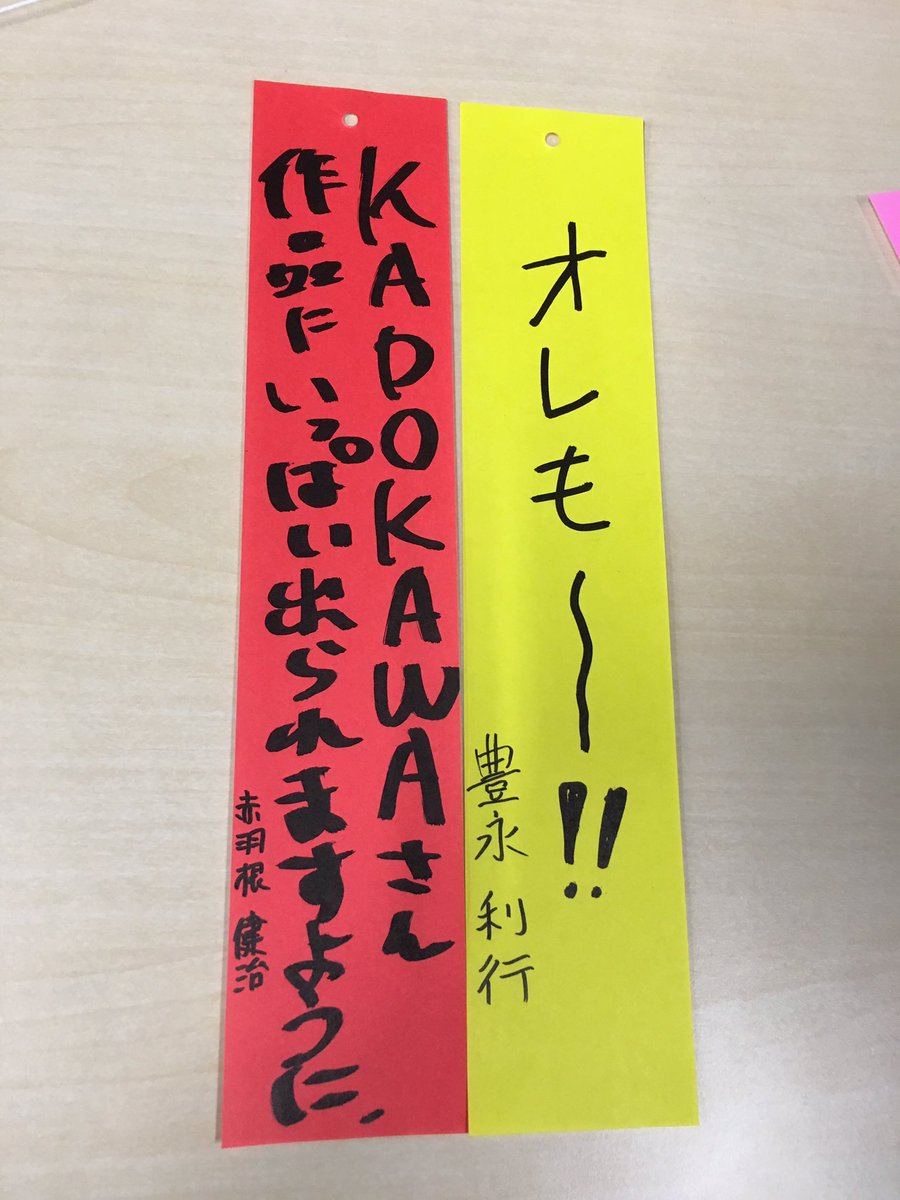 KADOKAWAさん
作品にいっぱい出られますように、
赤羽根 健治
オレも〜!!
豊永 利行